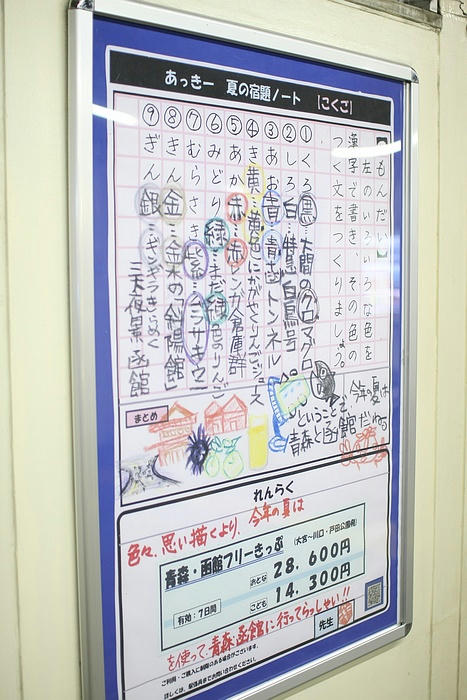 あっきー 夏の宿題ノート [こくご]
【もんだい】
左のいろいろな色を
漢字で書き、その色の
つく文をつくりましょう。
①くろ 黒…大間のクロマグロ
②しろ 白…特急白鳥号
③あお 青…青函トンネル
④き 黄…黄色にかがやくりんごジュース
⑤あか 赤…赤レンガ倉庫群
⑥みどり 緑…まだ緑色のりんご
⑦むらさき 紫…ムラサキウニ
⑧きん 金…金木の「斜陽館」
⑨ぎん 銀…ギンギラきらめく
三大夜景函館
まとめ
ということで
今年の夏は
青森と函館だねっ
れんらく
色々、思い描くより、今年の夏は
青森・函館フリーきっぷ
(大宮~川口・戸田公園発)
おとな 28,600円
有効:7日間
こども 14,300円
を使って、青森・函館に行ってらっしゃい!!
先生
ご利用・ご購入に制限のある場合がございます。
詳しくは、駅係員までお問い合わせください。